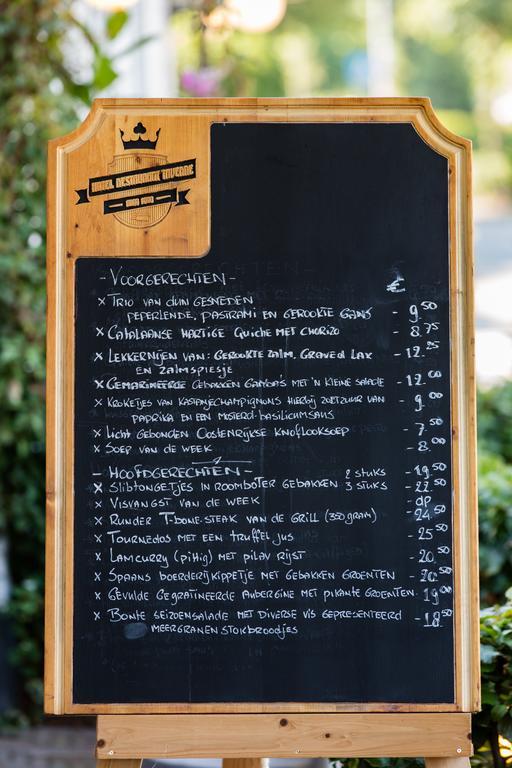 HOTEL RESTAURANT TAVEERNE
- VOORGERECHTEN -
€
x TRIO VAN DUN GESNEDEN
PEPERLENDE, PASTRAMI EN GEROOKTE GANS - 9.50
x CATALAANSE HARTIGE QUICHE MET CHORIZO - 8.75
x LEKKERNIJEN VAN: GEROOKTE ZALM, GRAVED LAX - 12.25
EN ZALMSPIESJE
x GEMARINEERDE GEBAKKEN GAMBA'S MET 'N KLEINE SALADE - 12.00
x KROKETJES VAN KASTANJECHAMPIGNONS HIERBIJ ZOETZUUR VAN - 9.00
PAPRIKA EN EEN MOSTERD-BASILICUMSAUS
x LICHT GEBONDEN OOSTENRIJKSE KNOFLOOKSOEP - 7.50
x SOEP VAN DE WEEK - 8.00
- HOOFDGERECHTEN - 2 STUKS - 19.50
x SLIBTONGETJES IN ROOMBOTER GEBAKKEN 3 STUKS - 22.50
x VISVANGST VAN DE WEEK - dp
x RUNDER T-BONE-STEAK VAN DE GRILL (350 GRAM) - 24.50
x TOURNEDOS MET EEN TRUFFELJUS - 25.50
x LAMCURRY (PITTIG) MET PILAV RIJST - 20.50
x SPAANS BOERDERIJKIPPETJE MET GEBAKKEN GROENTEN - 20.50
x GEVULDE GEGRATINEERDE AUBERGINE MET PIKANTE GROENTEN - 19.00
x BONTE SEIZOENSALADE MET DIVERSE VIS GEPRESENTEERD - 18.50
MEERGRANEN STOKBROODJES